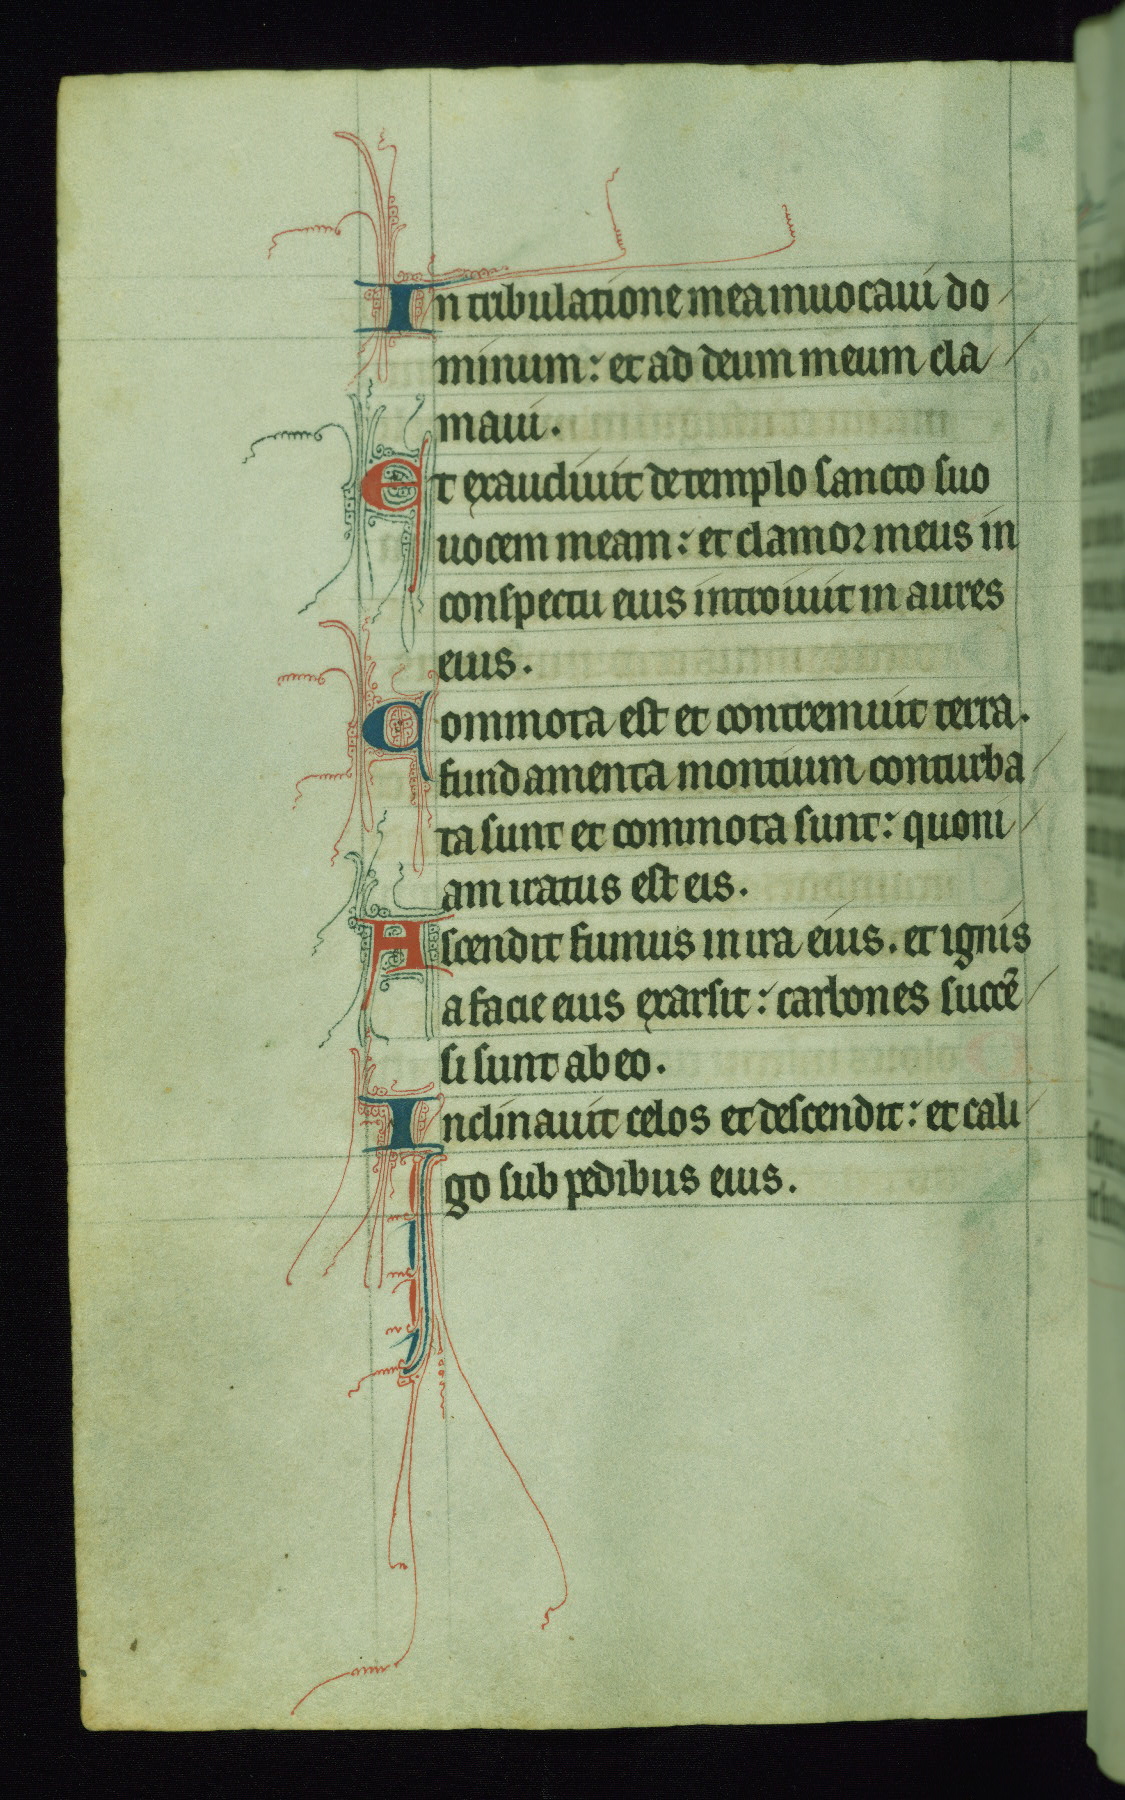 In tribulatione mea inuocaui do
minum: et ad deum meum cla
maui.
Et exaudiuit de templo sancto suo
uocem meam: et clamor meus in
conspectu eius introiuit in aures
eius.
Commota est et contremuit terra.
fundamenta montium conturba
ta sunt et commota sunt: quoni
am iratus est eis.
Ascendit fumus in ira eius. et ignis
a facie eius exarsit: carbones succē
si sunt ab eo.
Inclinauit celos et descendit: et cali
go sub pedibus eius.